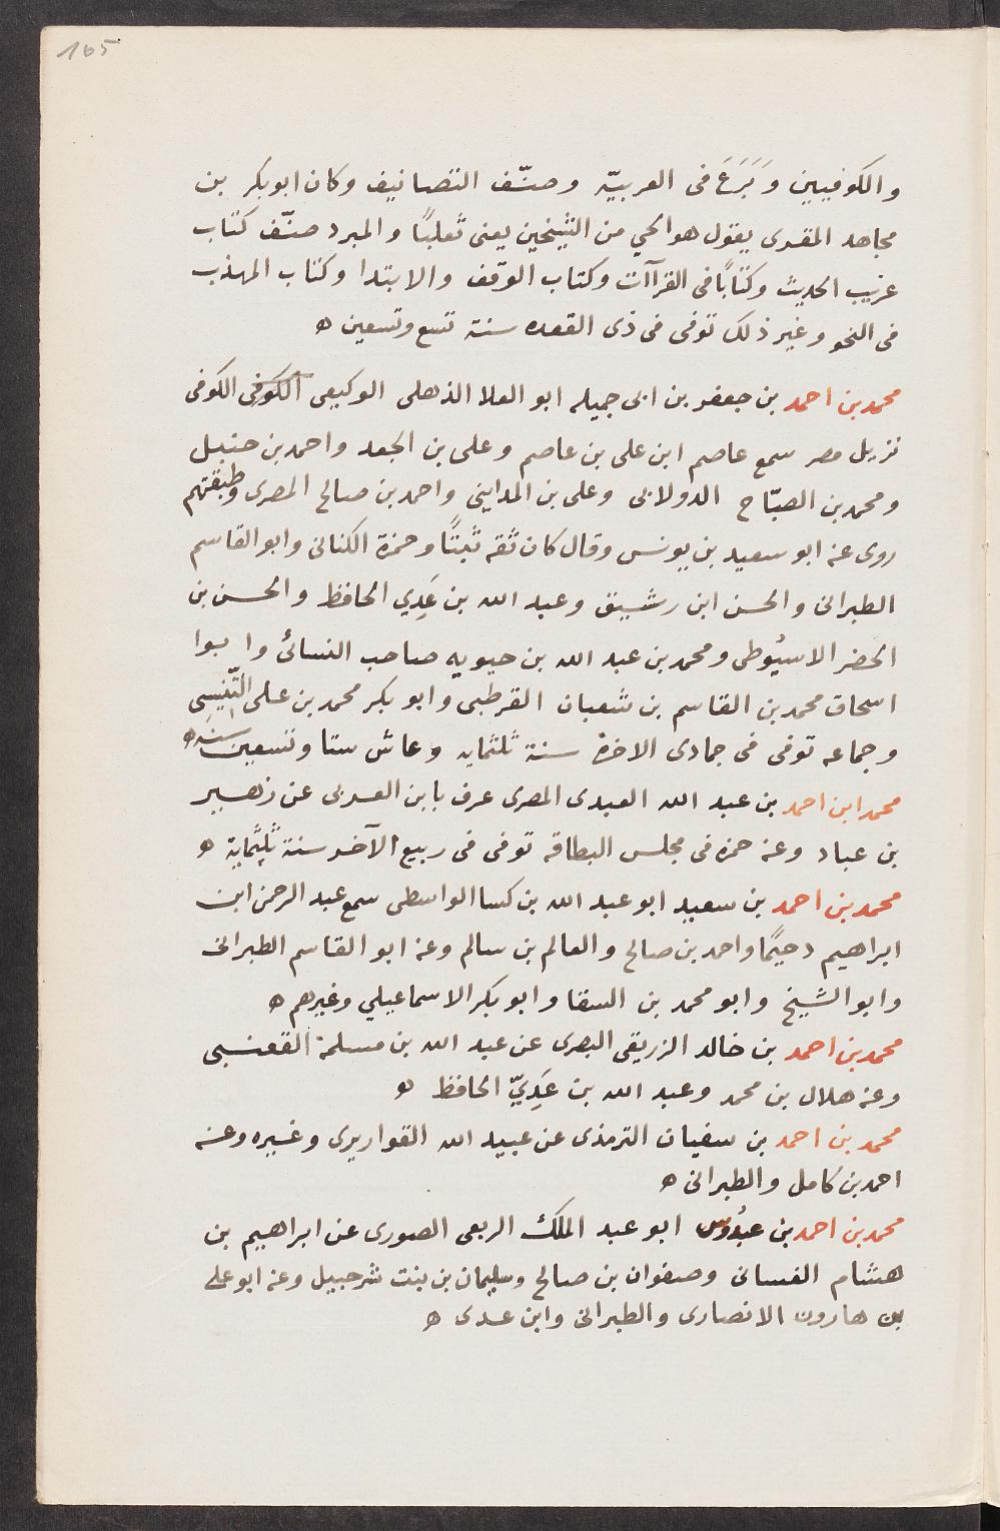 165
والكوفيين وَبَرَعَ فى العربيّه وصنّف التصانيف وكان ابو بكر بن
مجاهد المقرى يقول هو الحي من الشيخين يعنى ثعلبًا والمبرد صنّف كتاب
غريب الحديث وكتابًا فى القراآت وكتاب الوقف والابتدا وكتاب المهذب
فى النحو وغير ذلك توفى فى ذى القعده سنة تسع وتسعين ه
محمد بن احمد بن جعفر بن ابى جميله ابو العلا الذهلى الوكيعى الكوفى الكوفى
نزيل مصر سمع عاصم ابن على بن عاصم وعلى بن الجعد واحمد بن حنبل
ومحمد بن الصبّاح الدولابى وعلى بن المدايني واحمد بن صالح المصرى وطبقتهم
روى عنه ابو سعيد بن يونس وقال كان ثقه ثبتًا وحمزة الكنانى وابو القاسم
الطبرانى والحسن ابن رشيق وعبد الله بن عَدِي الحافظ والحسن بن
الخضر الاسيُوطى ومحمد بن عبد الله بن حيويه صاحب النسائ وابوا
اسحاق محمد بن القاسم بن شعبان القرطبى وابو بكر محمد بن على التِّنيسِى
وجماعه توفى فى جمادى الاخرة سنة ثلثمايه وعاش ستا وتسعين سنه ه
محمد ابن احمد بن عبد الله العبدى المصرى عرف بابن العربى عن زهير
بن عباد وعنه حمزه فى مجلس البطاقه توفى فى ربيع الآخر سنة ثلثماية ه
محمد بن احمد بن سعيد ابو عبد الله بن كسا الواسطى سمع عبد الرحمن ابن
ابراهيم دحيمًا واحمد بن صالح والعالم بن سالم وعنه ابو القاسم الطبرانى
وابو الشيخ وابو محمد بن السقا وابو بكر الاسماعيلي وغيرهم ه
محمد بن احمد بن خالد الزريقى البصرى عن عبد الله بن مسلمة القعنبى
وعنه هلال بن محمد وعبد الله بن عَدِيّ الحافظ ه
محمد بن احمد بن سفيان الترمذى عن عبيد الله القواريرى وغيره وعنه
احمد بن كامل والطبرانى ه
محمد بن احمد بن عبدُوس ابو عبد الملك الربعى الصورى عن ابراهيم بن
هشام الغسانى وصفوان بن صالح وسليمان بن بنت شرحبيل وعنه ابو على
بن هارون الانصارى والطبرانى وابن عدى ه